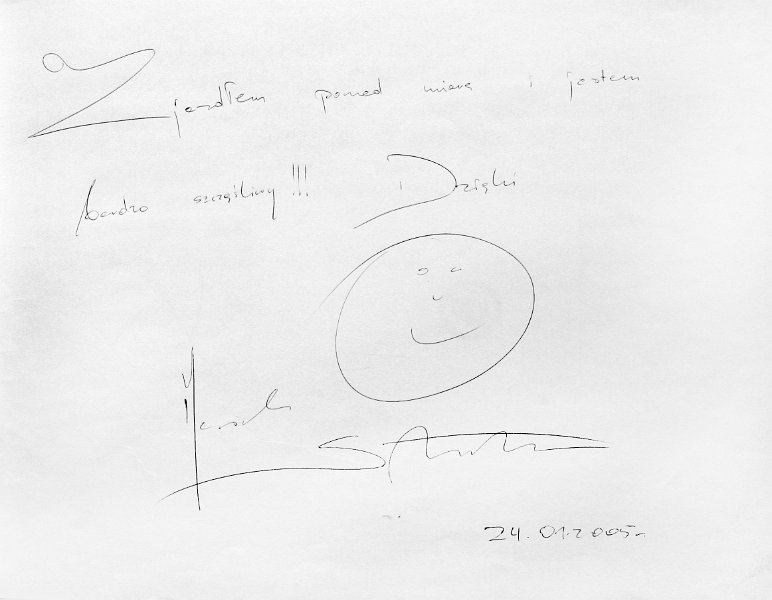 Zjadłem ponad miarę i jestem
bardzo szczęśliwy!!! Dzięki
24.01.2005r